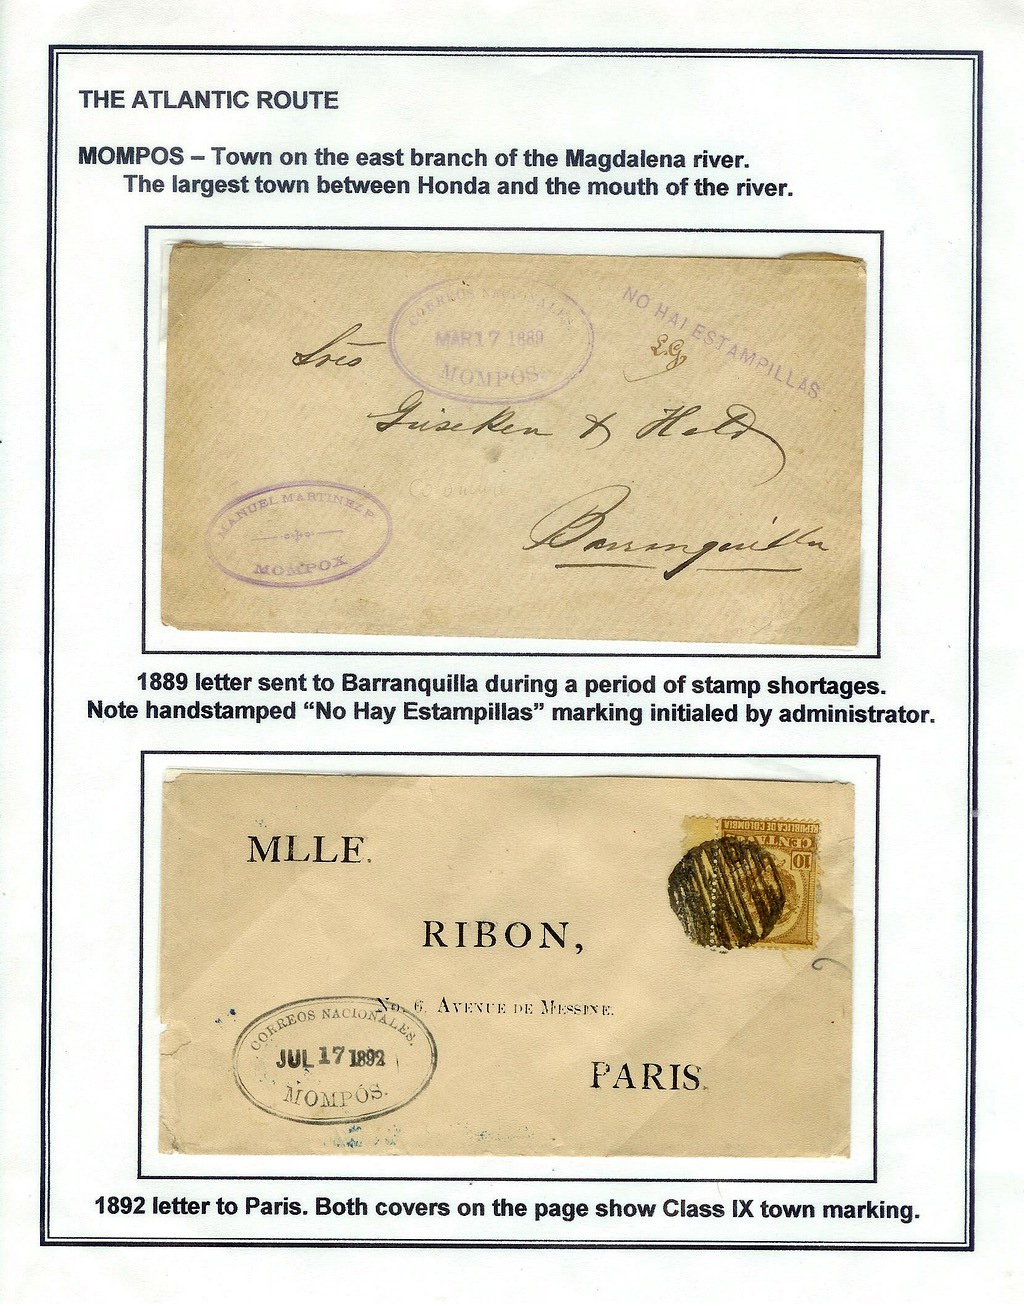 THE ATLANTIC ROUTE
MOMPOS – Town on the east branch of the Magdalena river.
The largest town between Honda and the mouth of the river.
CORREOS NACIONALES.
MAR 17 1889
MOMPÓS.
NO HAI ESTAMPILLAS.
Sres
Giseken & Held
Barranquilla
MANUEL MARTINEZ P
MOMPOX
1889 letter sent to Barranquilla during a period of stamp shortages.
Note handstamped “No Hay Estampillas” marking initialed by administrator.
MLLE.
REPUBLICA DE COLOMBIA
CENTAVOS
10
RIBON,
No. 6. AVENUE DE MESSINE.
PARIS.
CORREOS NACIONALES.
JUL 17 1892
MOMPÓS.
1892 letter to Paris. Both covers on the page show Class IX town marking.